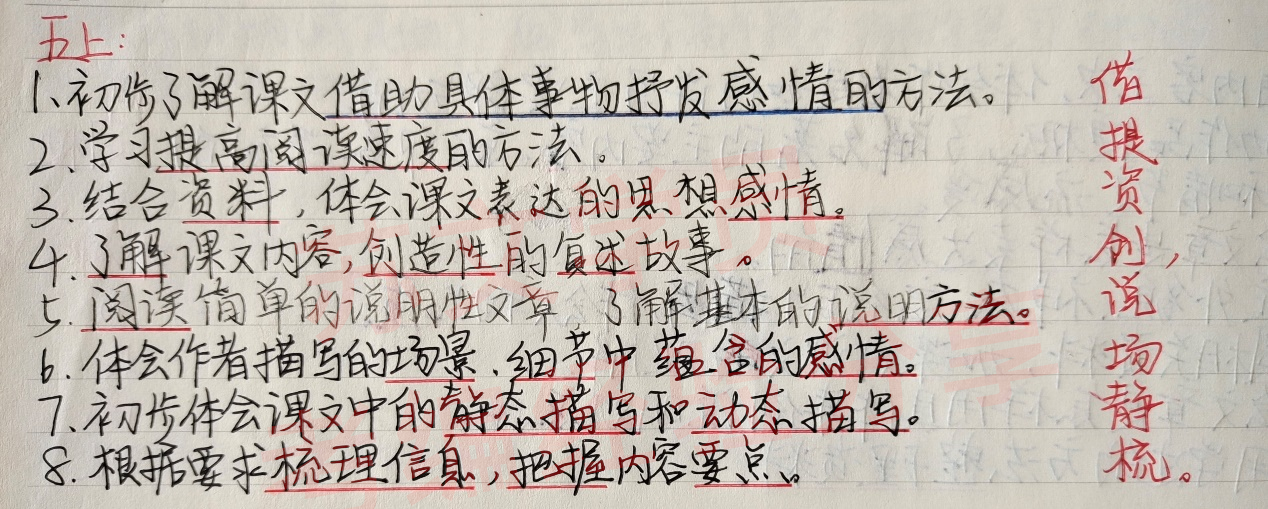 五上:
1、初步了解课文借助具体事物抒发感情的方法。 借
2、学习提高阅读速度的方法。 提
3.结合资料,体会课文表达的思想感情。 资
4.了解课文内容,创造性的复述故事。 创,
5.阅读简单的说明性文章 了解基本的说明方法。 说
6.体会作者描写的场景、细节中蕴含的感情。 场
7.初步体会课文中的静态描写和动态描写。 静
8.根据要求梳理信息,把握内容要点。 梳。